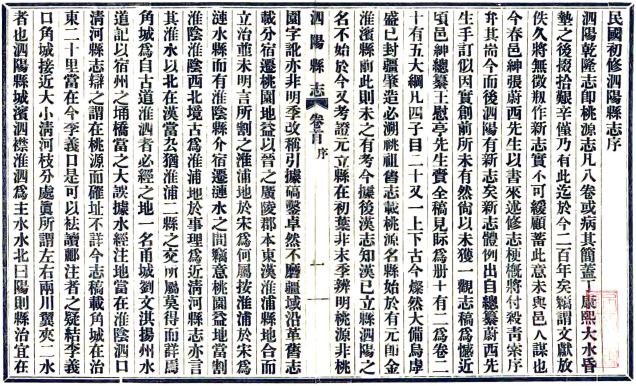 民國初修泗陽縣志序
泗陽乾隆志即桃源志凡八卷或病其簡蓋丁康熙大水昏
墊之後掇拾艱辛僅乃有此迄於今二百年矣竊謂文獻放
佚久將無徵剏作新志實不可緩顧蓄此意未與邑人謀也
今春邑紳張蔚西先生以書來述修志梗概將付殺青索序
弁其耑今而後泗陽有新志矣新志體例出自總纂蔚西先
生手訂似因實創前所未有然尙以未獲一觀志稿為憾近
頃邑紳總纂王慰亭先生賫全稿見眎為册十有二為卷二
十有五大綱凡四子目二十又一上下古今燦然大備烏虖
盛已封疆肇造必溯祧祖舊志載桃源名縣始於有元卽金
淮濱縣前此則未之有考今據後漢志知漢已立縣泗陽之
名不始於今又考證元立縣在初葉非末季辨明桃源非桃
泗陽縣志 卷首 序 一
園字訛亦非明季改稱引據碻鑿卓然不磨疆域沿革舊志
載分宿遷桃園地益以晉之廣陵郡本東漢淮浦縣地合而
立治茲未明言所割之淮浦地於宋為何屬按淮浦於宋為
漣水縣而有淮陰縣介宿遷漣水之間竊意桃園益地當割
淮陰淮陰西北境古為淮浦地於事理為近清河縣志亦言
其淮水以北在漢當厹猶淮浦二縣之交所屬莫得而詳焉
角城為自古道淮泗者必經之地一名甬城劉文淇揚州水
道記以宿州之埇橋當之大誤據水經注地當在淮陰泗口
清河縣志辯之謂在桃源而確址不詳今志稿載角城在治
東二十里當在今李義口是可以祛讀酈注者之疑結李義
口角城接近大小清河枝分處眞所謂左右兩川翼夾二水
者也泗陽縣城濱泗襟淮泗為主水水北曰陽則縣治宜在